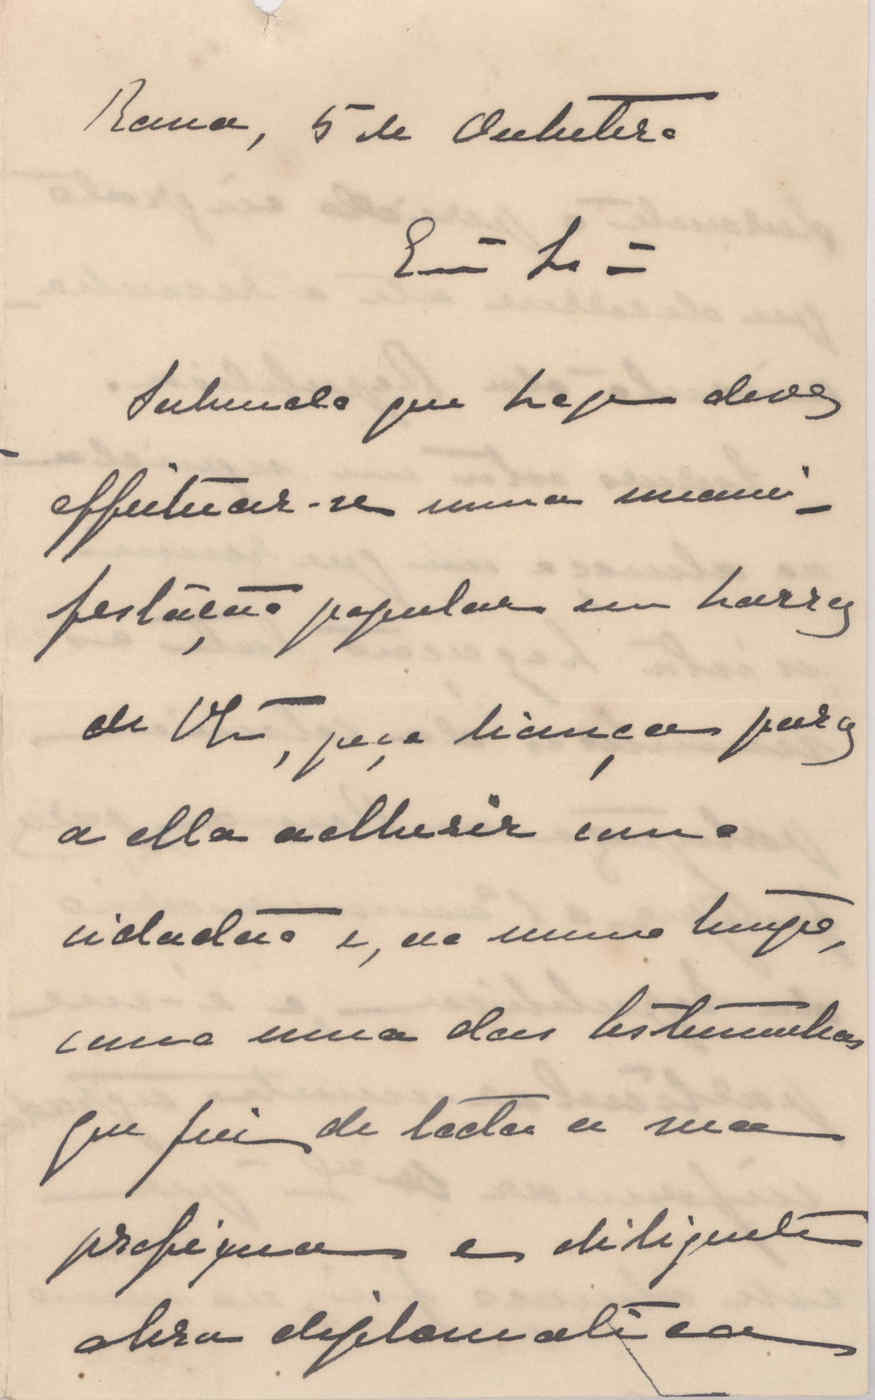 Roma, 5 de Outubro
Exmo Sr.
Sabendo que hoje deve
effeituar-se uma mani-
festação popular em honra
de VExa, peço licença para
a ella adherir como
cidadão e, ao mesmo tempo,
como uma das testemunhas
que fui de toda a sua
profiqua e diligente
obra diplomatica